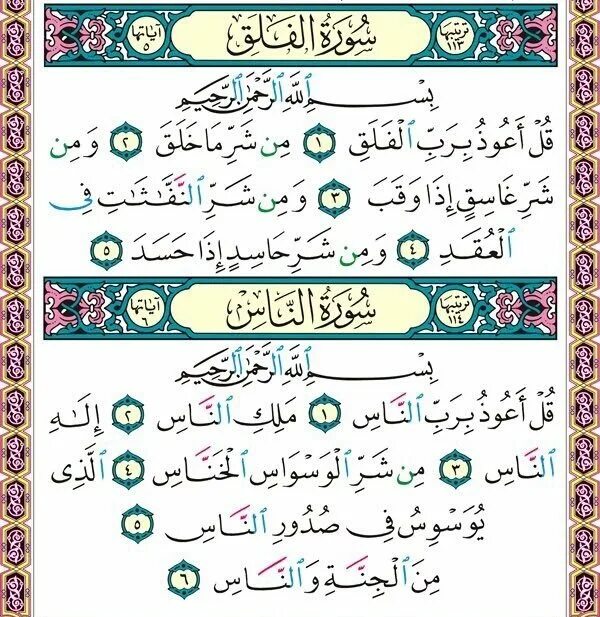 ترتيبها ١١٣ سُورَةُ الفَلَقِ آياتها ٥
بِسْمِ اللَّهِ الرَّحْمَٰنِ الرَّحِيمِ
قُلْ أَعُوذُ بِرَبِّ الْفَلَقِ ١ مِن شَرِّ مَا خَلَقَ ٢ وَمِن
شَرِّ غَاسِقٍ إِذَا وَقَبَ ٣ وَمِن شَرِّ النَّفَّاثَاتِ فِي
الْعُقَدِ ٤ وَمِن شَرِّ حَاسِدٍ إِذَا حَسَدَ ٥
ترتيبها ١١٤ سُورَةُ النَّاسِ آياتها ٦
بِسْمِ اللَّهِ الرَّحْمَٰنِ الرَّحِيمِ
قُلْ أَعُوذُ بِرَبِّ النَّاسِ ١ مَلِكِ النَّاسِ ٢ إِلَٰهِ
النَّاسِ ٣ مِن شَرِّ الْوَسْوَاسِ الْخَنَّاسِ ٤ الَّذِي
يُوَسْوِسُ فِي صُدُورِ النَّاسِ ٥
مِنَ الْجِنَّةِ وَالنَّاسِ ٦